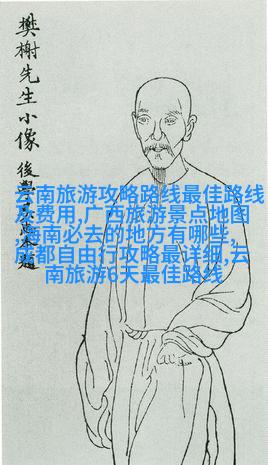 樊榭先生小像
後學
云南旅游攻略路线最佳路线
及费用,广西旅游景点地图
,海南必去的地方有哪些,
成都自由行攻略最详细,云
南旅游6天最佳路线